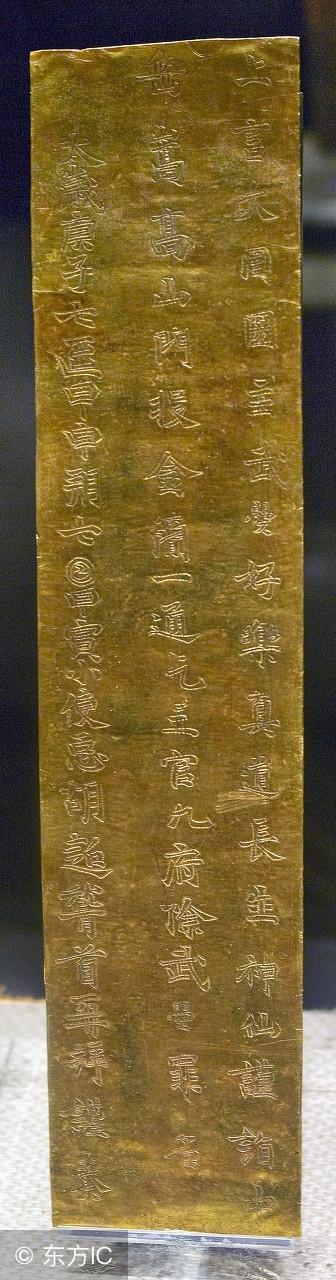 上言大周圀主武曌好樂真道長生神仙謹詣中
岳嵩高山門投金簡一通乞三官九府除武曌罪名
太歲庚子七𠥱甲申朔七𡆠甲寅小使𢘑胡超稽首再拜謹奏
© 东方IC